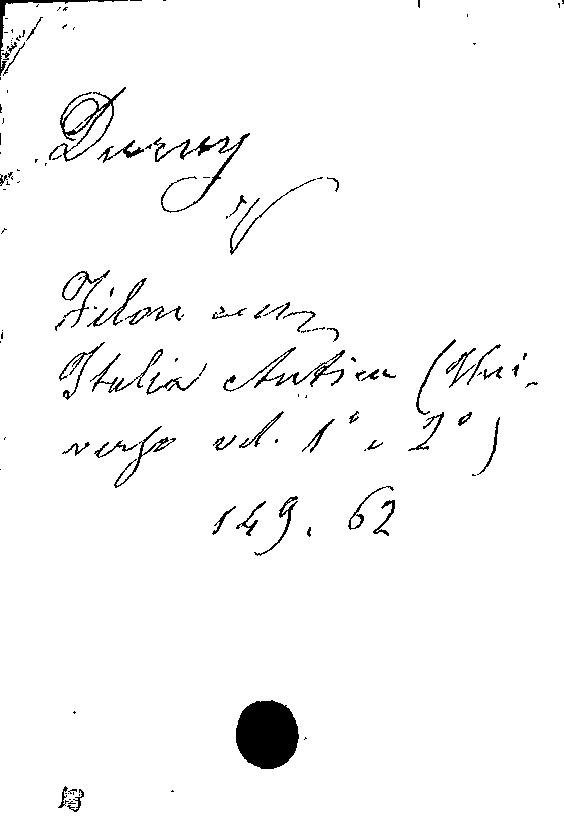 Duruy
V
Filon ecc.
Italia Antica (Uni-
verso vol. 1° e 2°)
149. 62